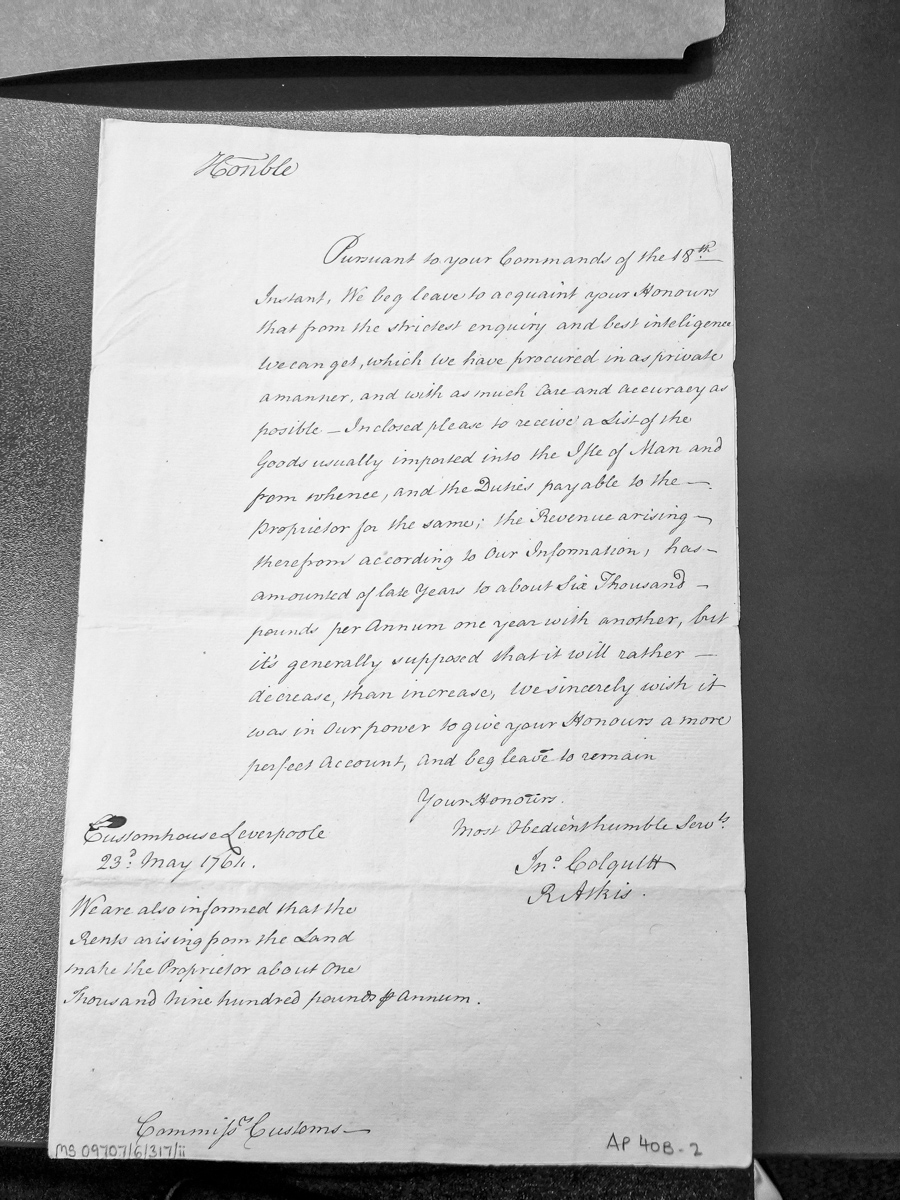 Honble
Pursuant to your Commands of the 18.th
Instant, We beg leave to acquaint your Honours
that from the strictest enquiry and best inteligence
we can get, which we have procured in as private
a manner, and with as much Care and Accuracy as
posible — Inclosed please to receive a List of the
Goods usually imported into the Isle of Man and
from whence, and the Duties payable to the —
Proprietor for the same; the Revenue arising —
therefrom according to Our Information, has —
amounted of late Years to about Six Thousand —
pounds per Annum one year with another, but
it's generally supposed that it will rather —
decrease, than increase, We sincerely wish it
was in Our power to give your Honours a more
perfect Account, and beg leave to remain
Your Honours.
Most Obedient humble Serv.ts
Jn.o Colquitt
R Atkis.
Customhouse Leverpoole
23.d May 1764.
We are also informed that the
Rents arising from the Land
make the Proprietor about One
Thousand Nine hundred pounds p Annum.
Commiss.rs Customs —
MS 09707/6/317/ii
AP 40B-2